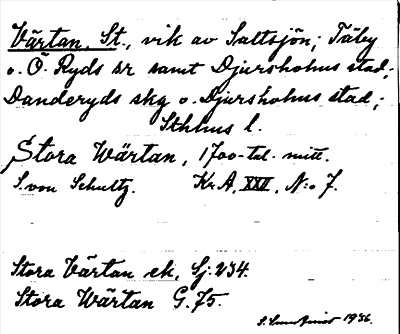 Värtan, St., vik av Saltsjön; Täby
o. Ö. Ryds sr samt Djursholms stad;
Danderyds skg o. Djursholms stad;
Sthlms l.
Stora Wärtan, 1700-tal. mitt.
S. von Schultz. Kr A, XXII, N:o 7.
Stora Värtan ek. Gj. 234.
Stora Wärtan G. 75.
1936.